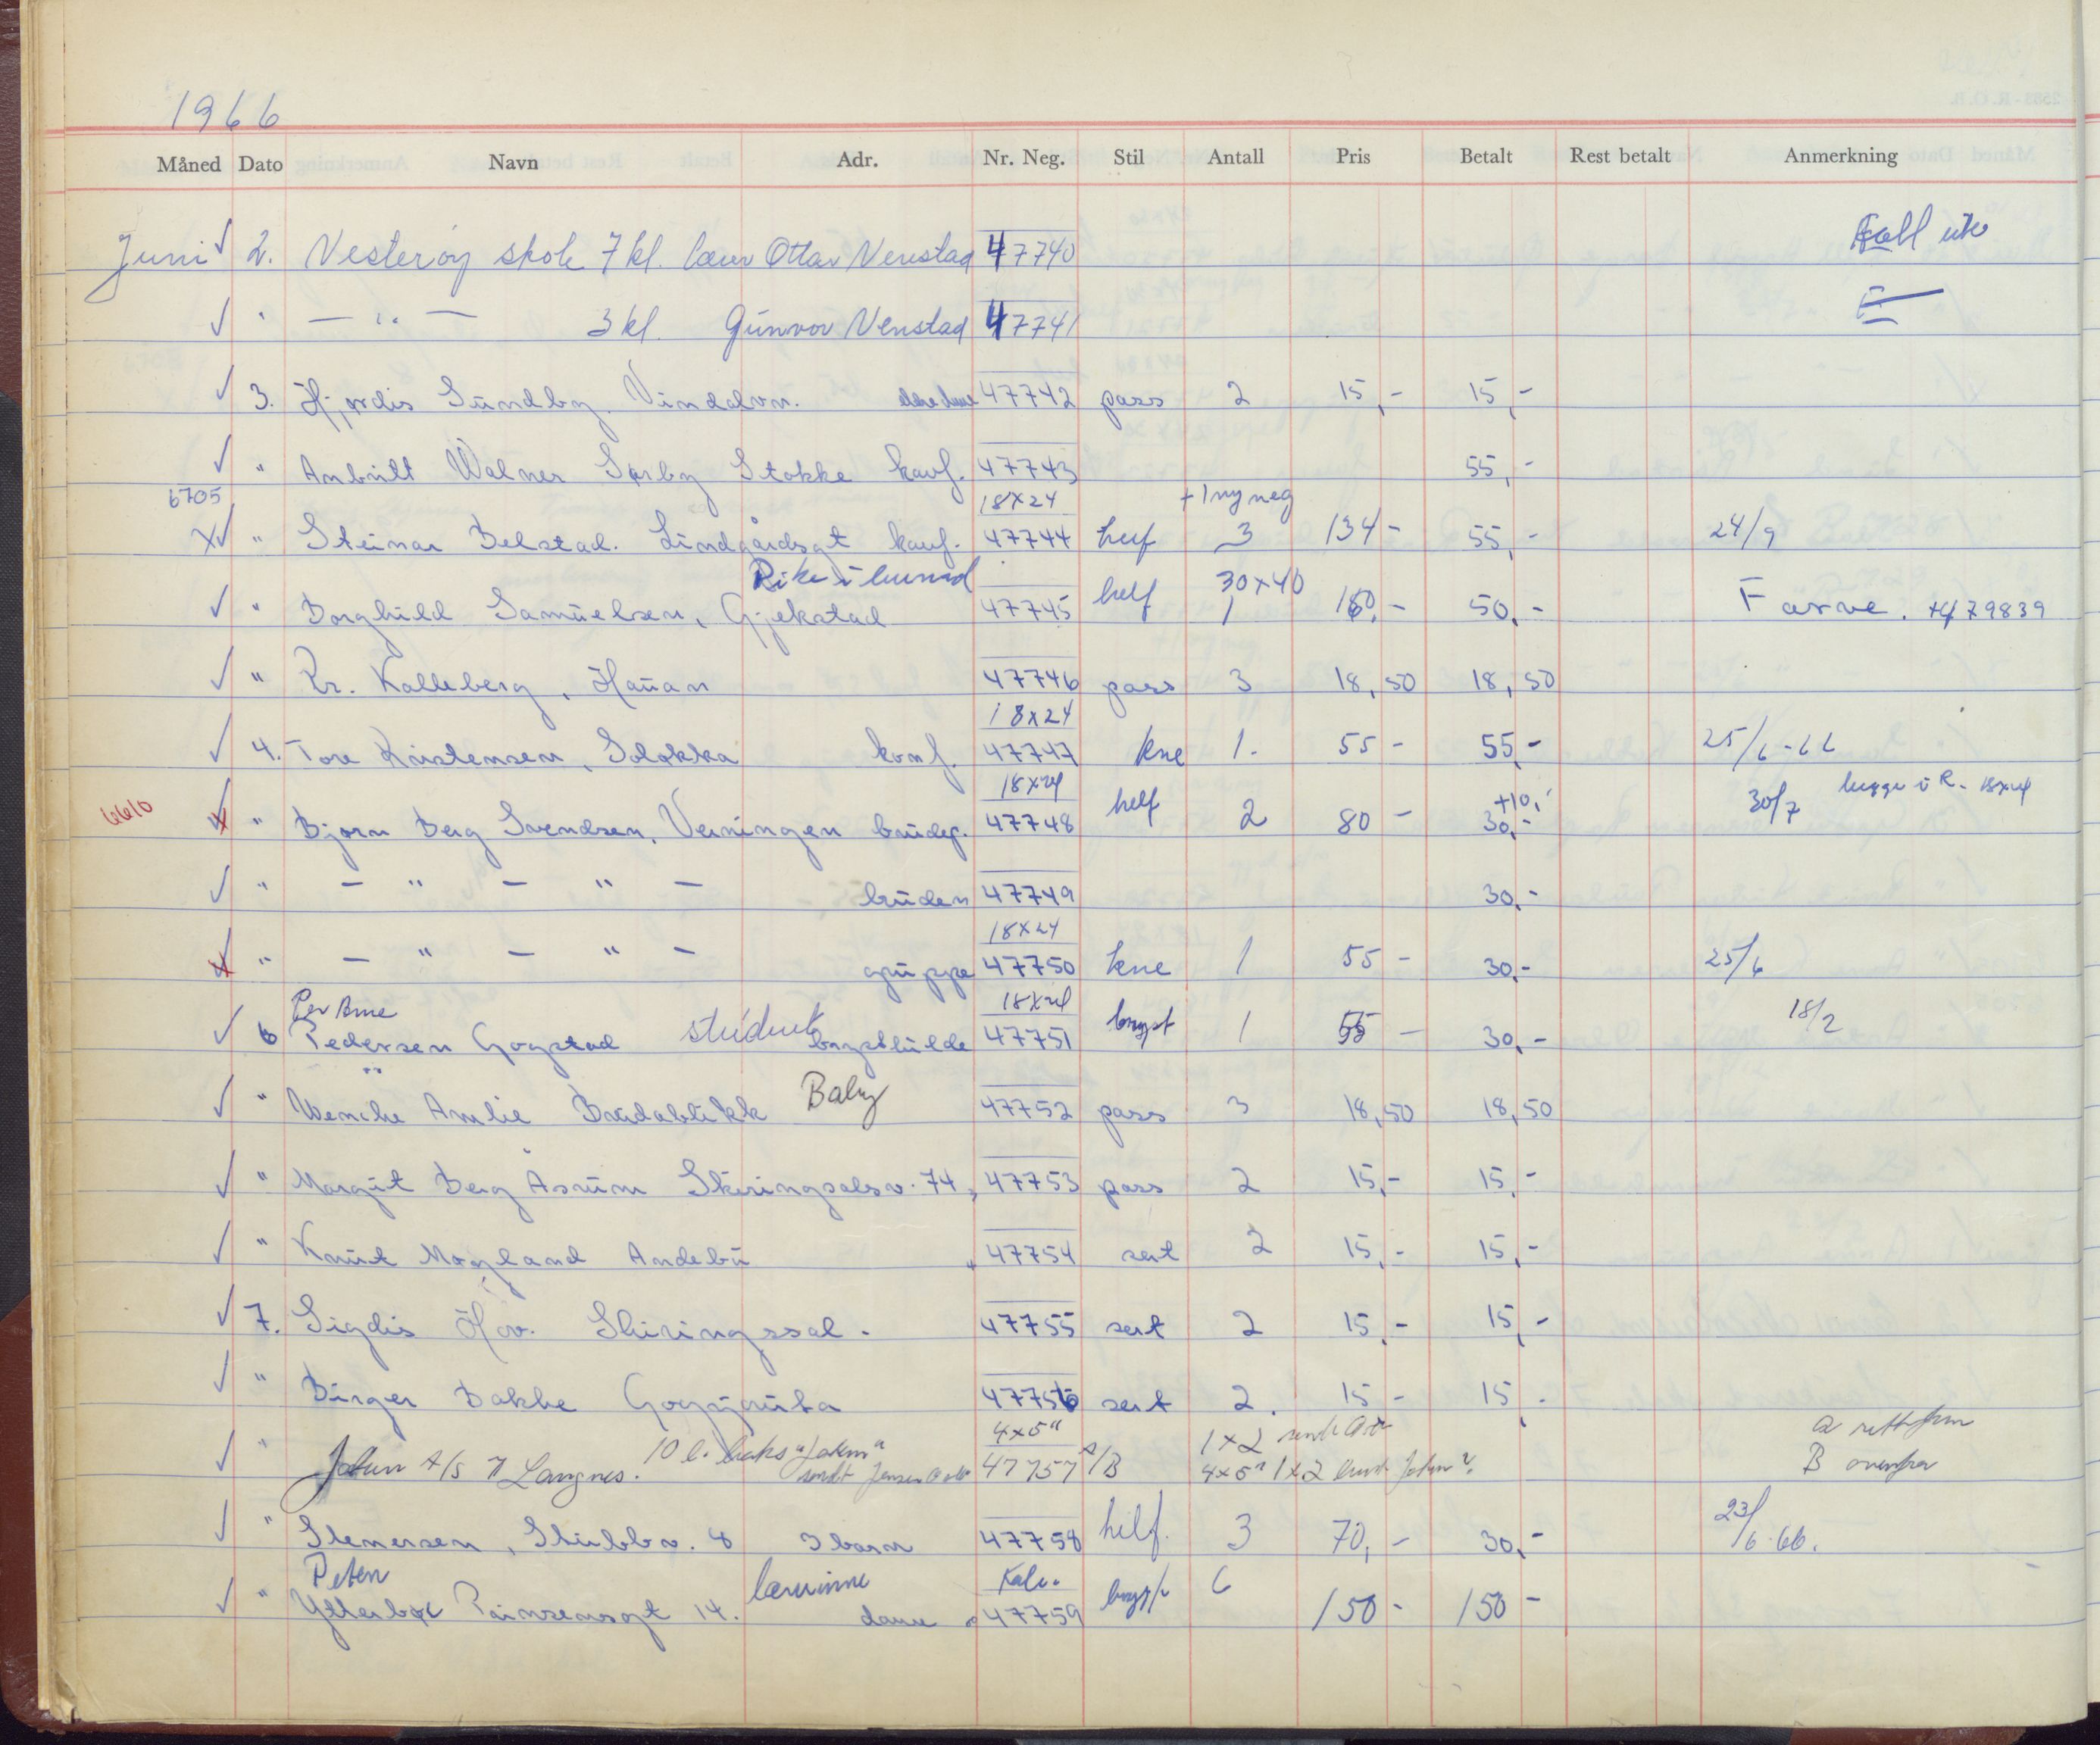 1966
Måned Dato Navn Adr. Nr. Neg. Stil Antall Pris Betalt Rest betalt Anmerkning
Juni √ 2. Vesterøy skole 7 kl. lærer Ottar Venstad 47740
√ " — " — 3 kl. Gunvor Venstad 47741
√ 3. Hjørdis Sundby. Vindalvn. 47742 pass 2 15,- 15,-
√ " Anbritt Walner Sørby Stokke konf. 47743 55,-
6705 18x24 + 1 ny neg
X√ " Steinar Belstad. Lindgårdsgt konf. 47744 3 134- 55,- 24/9
i bunad 30x40
√ " Borghild Samuelsen, Gjekstad 47745 helf 1 160,- 50,- Farve. 479839
√ " Kr. Kolleberg, Hauan 47746 pass 3 18,50 18,50
18x24
√ 4. Tore Kristensen, Soløkka konf. 47747 kne 1. 55- 55,- 25/6-66
18x24 +10,- begge i R. 18x24
6610 √ " Bjørn Berg Svendsen, Verningen brudep. 47748 helf 2 80- 30,- 30/7
√ " — " — " — bruden 47749 30,-
18x24
√ " — " — " — gruppe 47750 kne 1 55- 30,- 25/6
Per Arne 18x24
√ 6 Pedersen Gogstad student brystbilde 47751 bryst 1 55- 30,- 18/2
√ " Wenche Amlie Breidablikk Baby 47752 pass 3 18,50 18,50
√ " Margit Berg Åsrum Skiringsalsv. 74, 47753 pass 2 15,- 15,-
√ " Knut Mogland Andebu 47754 sert 2 15,- 15,-
√ 7. Sigdis Hov. Skiringssal. 47755 sert 2 15,- 15,-
√ " Birger Bakke Gogsjruta 47756 sert 2. 15- 15.
4x5" 1x2
√ " Jotun A/S Langnes. 10 l. "Jotun" 47757 A/B 4x5" 1x2 Jotun
B ovenfra
√ " Stenersen, Stubbv. 8 3 barn 47758 helf. 3 70,- 30,- 23/6-66.
Peter lærerinne Kab.
√ " Ytterbøe Prinsensgt 14. 47759 bryst 6 150- 150-